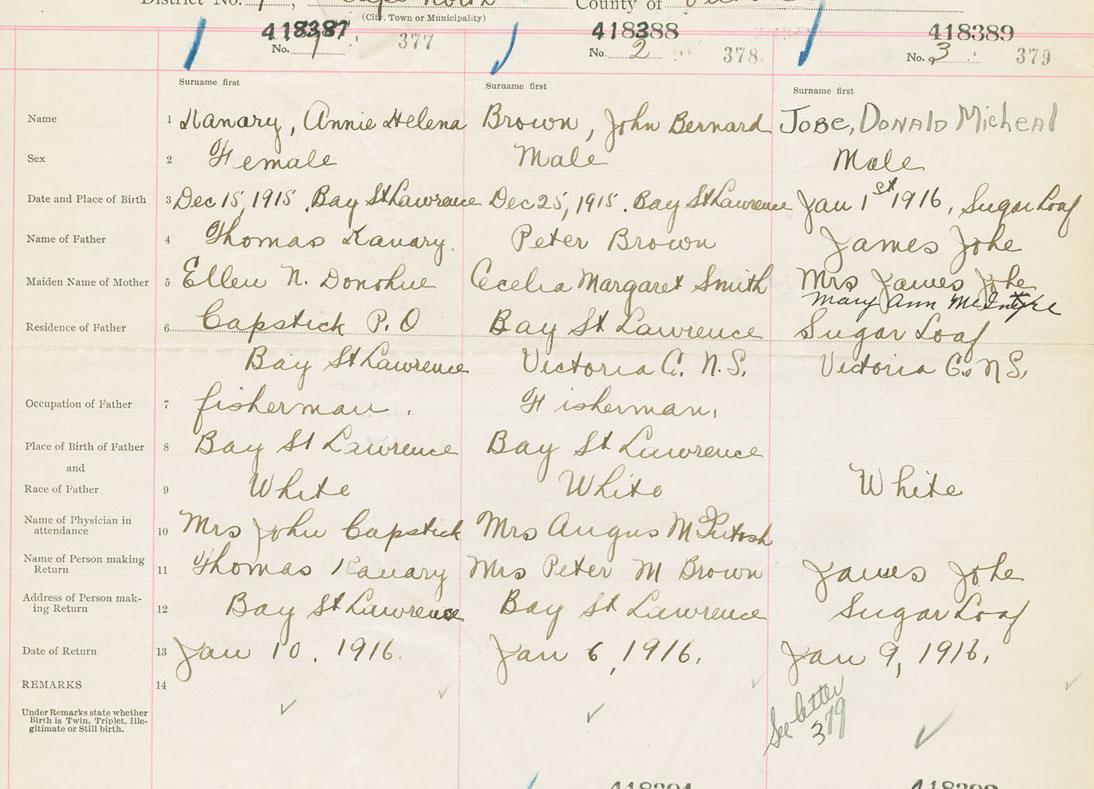 District No. 1, Cape North County of
(City, Town or Municipality)
418387 418388 418389
No. 1 377 No. 2 378 No. 3 379
Surname first Surname first Surname first
Name 1 Kanary, Annie Helena Brown, John Bernard Jobe, Donald Micheal
Sex 2 Female Male Male
Date and Place of Birth 3 Dec 15, 1915, Bay St Lawrence Dec 25, 1915. Bay St Lawrence Jan 1st 1916, Sugar Loaf
Name of Father 4 Thomas Kanary. Peter Brown James Johe
Maiden Name of Mother 5 Ellen N. Donohue Cecelia Margaret Smith Mrs James Johe
Mary Ann McIntyre
Residence of Father 6 Capstick P.O Bay St Lawrence Sugar Loaf
Bay St Lawrence Victoria C. N.S. Victoria Co N.S.
Occupation of Father 7 fisherman. Fisherman.
Place of Birth of Father 8 Bay St Lawrence Bay St Lawrence
and
Race of Father 9 White White White
Name of Physician in attendance 10 Mrs John Capstick Mrs Angus McIntosh
Name of Person making Return 11 Thomas Kanary Mrs Peter M Brown James Johe
Address of Person making Return 12 Bay St Lawrence Bay St Lawrence Sugar Loaf
Date of Return 13 Jan 10, 1916. Jan 6, 1916. Jan 9, 1916.
REMARKS 14
Under Remarks state whether
Birth is Twin, Triplet, Ille-
gitimate or Still birth.
See letter
379